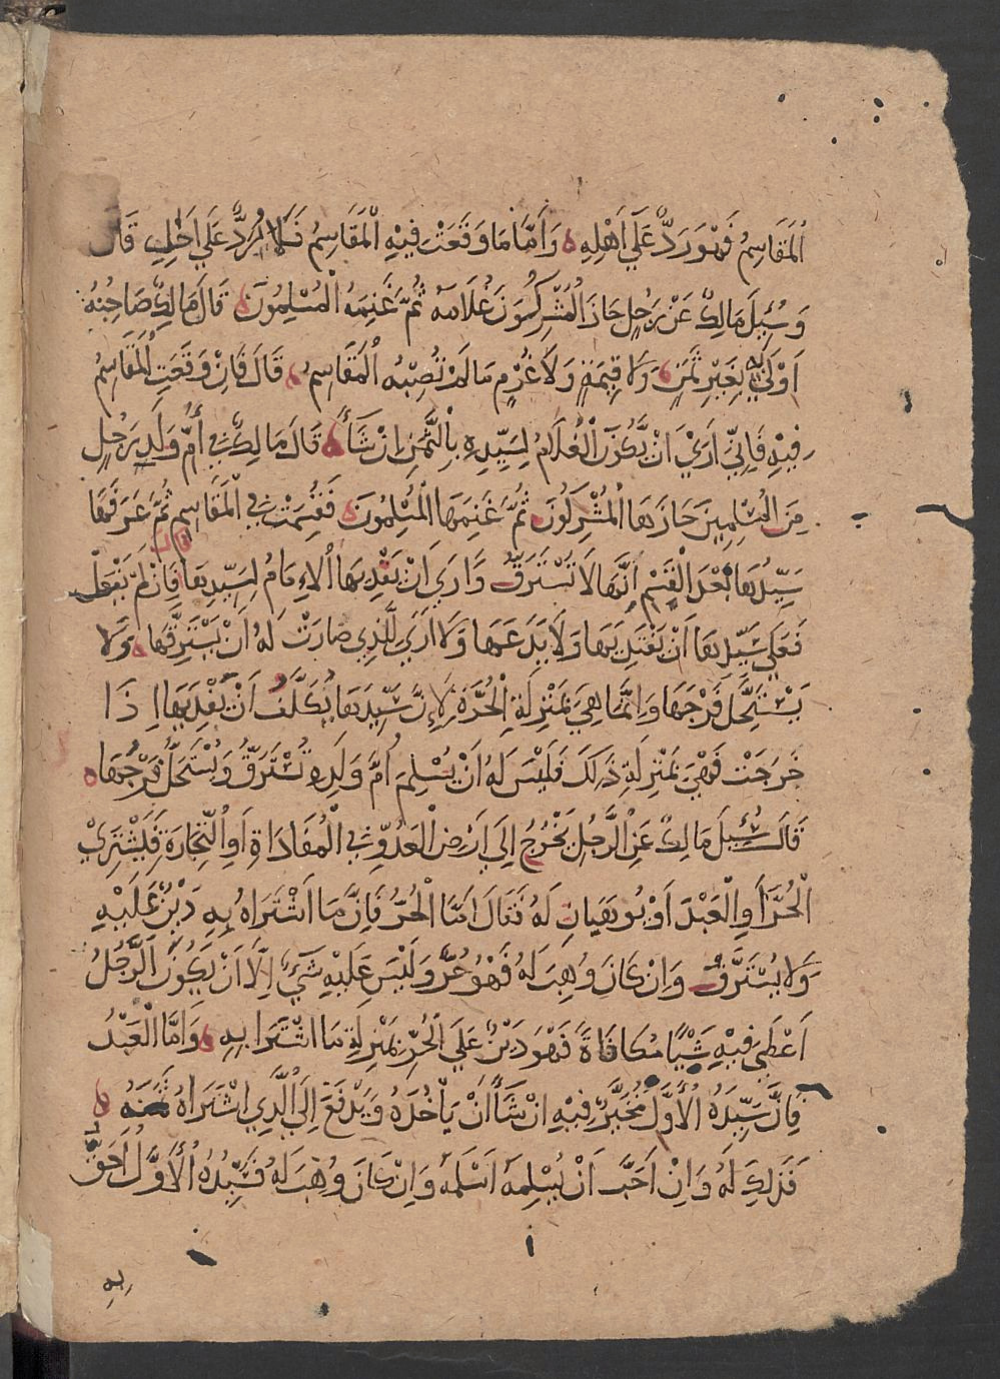 الْمَقَاسِمُ فَهُوَ رَدٌّ عَلَى أَهْلِهِ ه وَأَمَّا مَا وَقَعَتْ فِيهِ الْمَقَاسِمُ فَلَا يُرَدُّ عَلَى أَحَدٍ قَالَ
وَسُئِلَ مَالِكٌ عَنْ رَجُلٍ حَازَ الْمُشْرِكُونَ غُلَامَهُ ثُمَّ غَنِمَهُ الْمُسْلِمُونَ ه قَالَ مَالِكٌ صَاحِبُهُ
أَوْلَى بِهِ بِغَيْرِ ثَمَنٍ وَلَا قِيمَةٍ وَلَا غُرْمٍ مَا لَمْ تُصِبْهُ الْمَقَاسِمُ ه قَالَ فَإِنْ وَقَعَتِ الْمَقَاسِمُ
فِيهِ فَإِنِّي أَرَى أَنْ يَكُونَ الْغُلَامُ لِسَيِّدِهِ بِالثَّمَنِ إِنْ شَاءَ ه قَالَ مَالِكٌ فِي أُمِّ وَلَدِ رَجُلٍ
مِنَ الْمُسْلِمِينَ حَازَهَا الْمُشْرِكُونَ ثُمَّ غَنِمَهَا الْمُسْلِمُونَ ه فَقُسِمَتْ فِي الْمَقَاسِمِ ثُمَّ عَرَفَهَا
سَيِّدُهَا بَعْدَ الْقَسْمِ إِنَّهَا لَا تُسْتَرَقُّ وَأَرَى أَنْ يَفْدِيَهَا الْإِمَامُ لِسَيِّدِهَا فَإِنْ لَمْ يَفْعَلْ
فَعَلَى سَيِّدِهَا أَنْ يَفْتَدِيَهَا وَلَا يَدَعَهَا وَلَا أَرَى لِلَّذِي صَارَتْ لَهُ أَنْ يَسْتَرِقَّهَا ه وَلَا
يَسْتَحِلَّ فَرْجَهَا وَإِنَّمَا هِيَ بِمَنْزِلَةِ الْحُرَّةِ لِأَنَّ سَيِّدَهَا يُكَلَّفُ أَنْ يَفْدِيَهَا إِذَا
خَرَجَتْ فَهِيَ بِمَنْزِلَةِ ذَلِكَ فَلَيْسَ لَهُ أَنْ يُسْلِمَ أُمَّ وَلَدِهِ تُسْتَرَقُّ وَيُسْتَحَلُّ فَرْجُهَا ه
قَالَ سُئِلَ مَالِكٌ عَنِ الرَّجُلِ يَخْرُجُ إِلَى أَرْضِ الْعَدُوِّ فِي الْمُفَادَاةِ أَوِ التِّجَارَةِ فَيَشْتَرِي
الْحُرَّ أَوِ الْعَبْدَ أَوْ يُوهَبَانِ لَهُ فَقَالَ أَمَّا الْحُرُّ فَإِنَّ مَا اشْتَرَاهُ بِهِ دَيْنٌ عَلَيْهِ
وَلَا يُسْتَرَقُّ وَإِنْ كَانَ وُهِبَ لَهُ فَهُوَ حُرٌّ وَلَيْسَ عَلَيْهِ شَيْءٌ إِلَّا أَنْ يَكُونَ الرَّجُلُ
أَعْطَى فِيهِ شَيْئًا مُكَافَاةً فَهُوَ دَيْنٌ عَلَى الْحُرِّ بِمَنْزِلَةِ مَا اشْتَرَا بِهِ ه وَأَمَّا الْعَبْدُ
فَإِنَّ سَيِّدَهُ الْأَوَّلَ مُخَيَّرٌ فِيهِ إِنْ شَاءَ أَنْ يَأْخُذَهُ وَيَدْفَعَ إِلَى الَّذِي اشْتَرَاهُ ثَمَنَهُ ه
فَذَلِكَ لَهُ وَإِنْ أَحَبَّ أَنْ يُسْلِمَهُ أَسْلَمَهُ وَإِنْ كَانَ وُهِبَ لَهُ فَسَيِّدُهُ الْأَوَّلُ أَحَقُّ
بِهِ